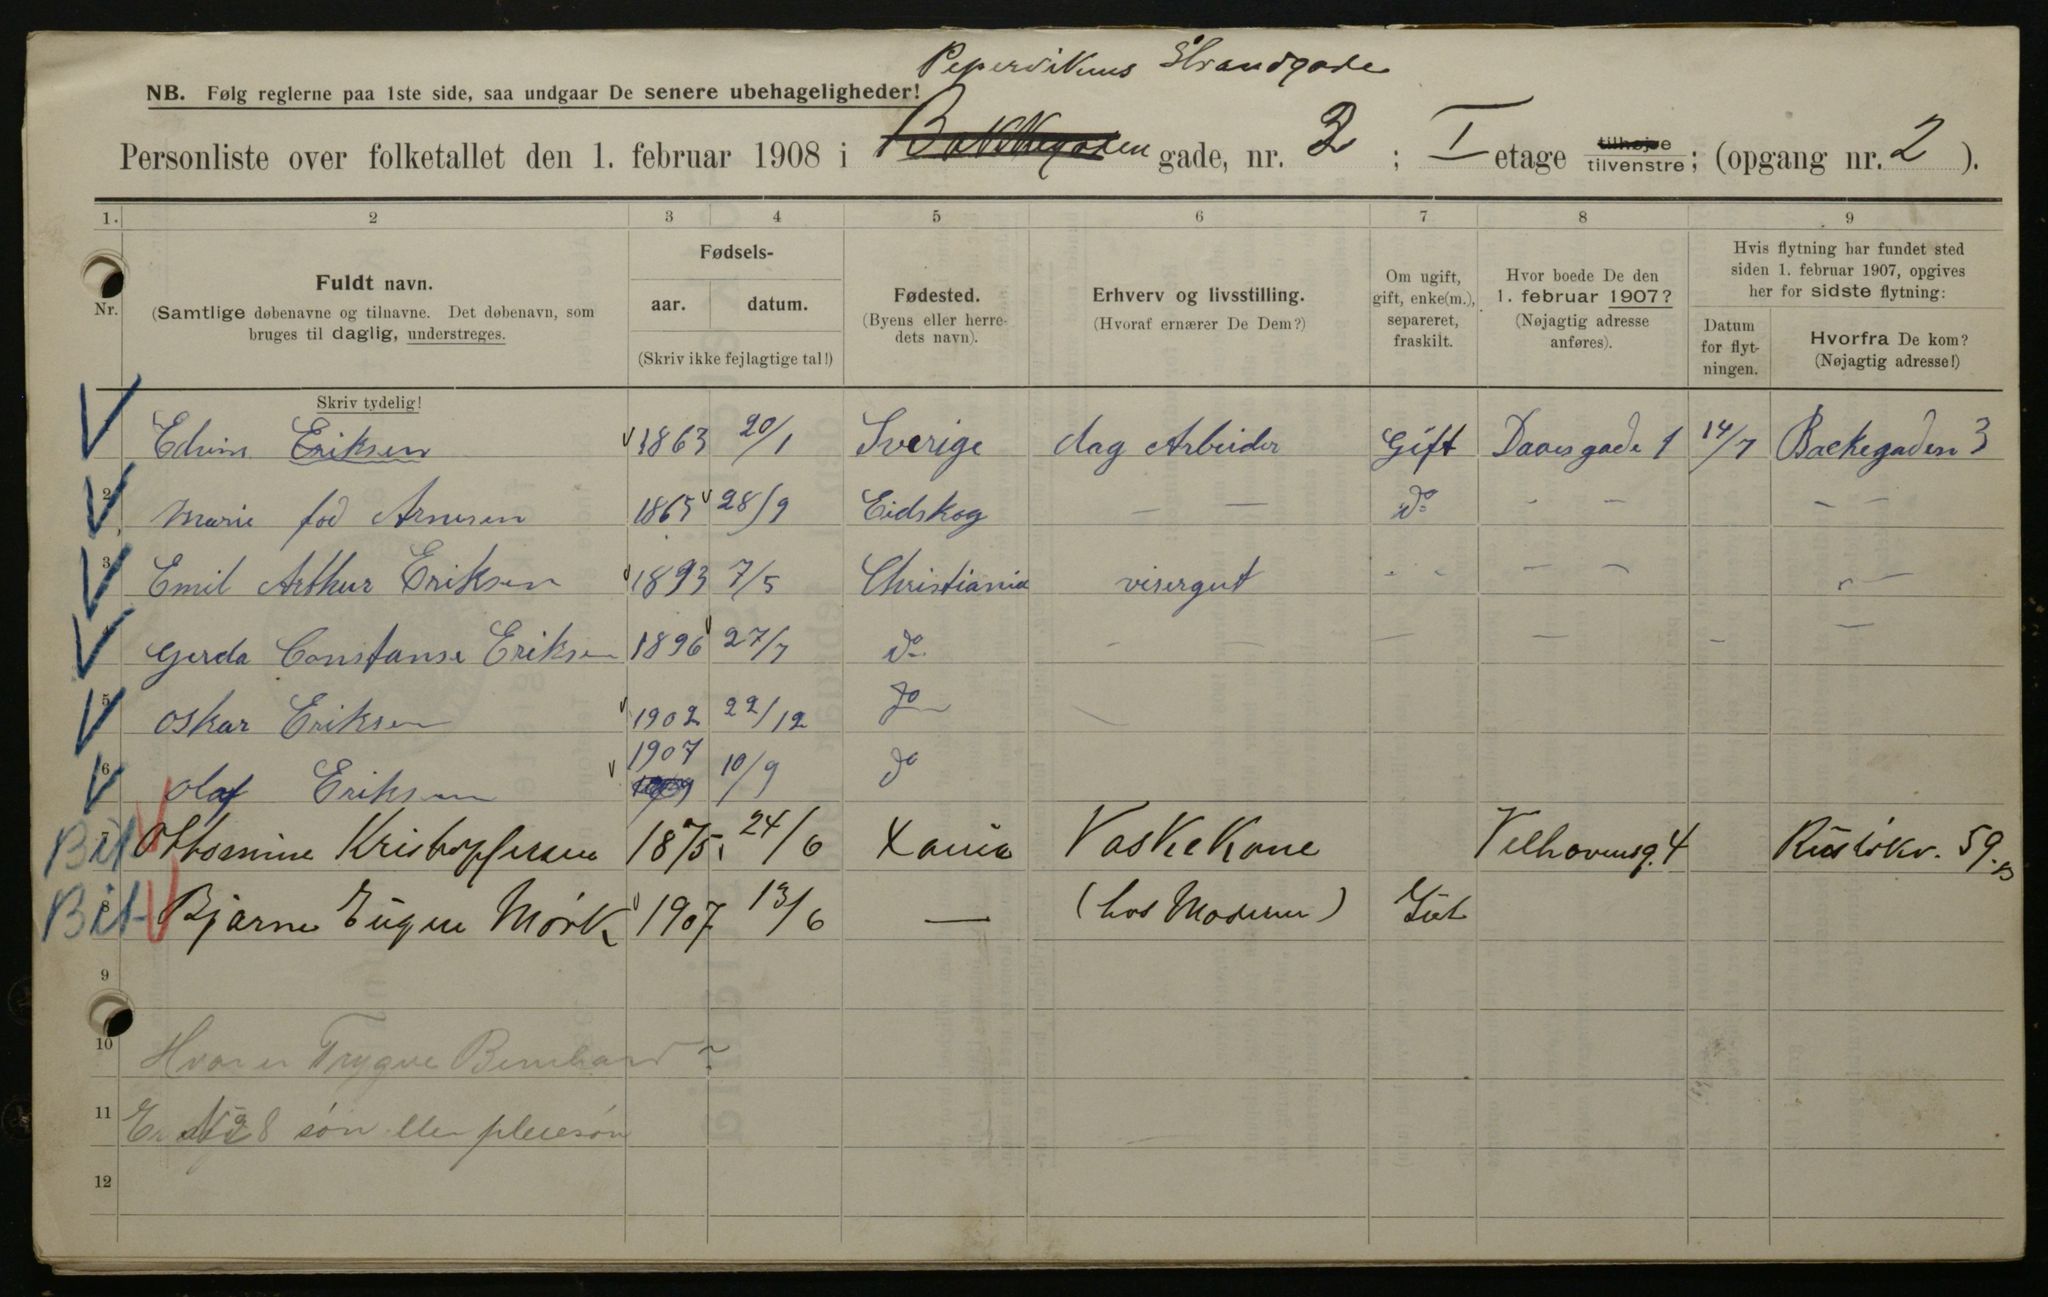 Pepervikens Strandgade
NB. Følg reglerne paa 1ste side, saa undgaar De senere ubehageligheder!
Personliste over folketallet den 1. februar 1908 i Bakkegaden gade, nr. 2 ; I etage tilhøjre tilvenstre; (opgang nr. 2 ).
1. 2 3 4 5 6 7 8 9
Nr.
Fuldt navn.
(Samtlige døbenavne og tilnavne. Det døbenavn, som
bruges til daglig, understreges.
Skriv tydelig!
Fødsels-
aar. datum.
(Skriv ikke fejlagtige tal!)
Fødested.
(Byens eller herre-
dets navn).
Erhverv og livsstilling.
(Hvoraf ernærer De Dem?)
Om ugift,
gift, enke(m.),
separeret,
fraskilt.
Hvor boede De den
1. februar 1907?
(Nøjagtig adresse
anføres).
Hvis flytning har fundet sted
siden 1. februar 1907, opgives
her for sidste flytning:
Datum
for flyt-
ningen.
Hvorfra De kom?
(Nøjagtig adresse!)
Edvin Eriksen 1863 20/1 Sverige dag Arbeider Gift Daaesgade 1 14/7 Backegaden 3
2 Marie fød Arnesen 1865 28/9 Eidskog — — do - - - -
3 Emil Arthur Eriksen 1893 7/5 Christiania visergut - - - - -
Gerda Constanse Eriksen 1896 27/7 do - - - - - -
5 Oskar Eriksen 1902 22/12 do
6 Olaf Eriksen 1907 10/9 do
Bit 7 Othomine Kristoffersen 1875 24/6 Xania Vaskekone Velhavensg. 4 59
Bit 8 Bjarne Eugen Mørk 1907 13/6 — (hos Moderen) Gift
9
10 Hvor er Trygve Bernhard ?
11 Er No 8 søn eller pleiesøn
12